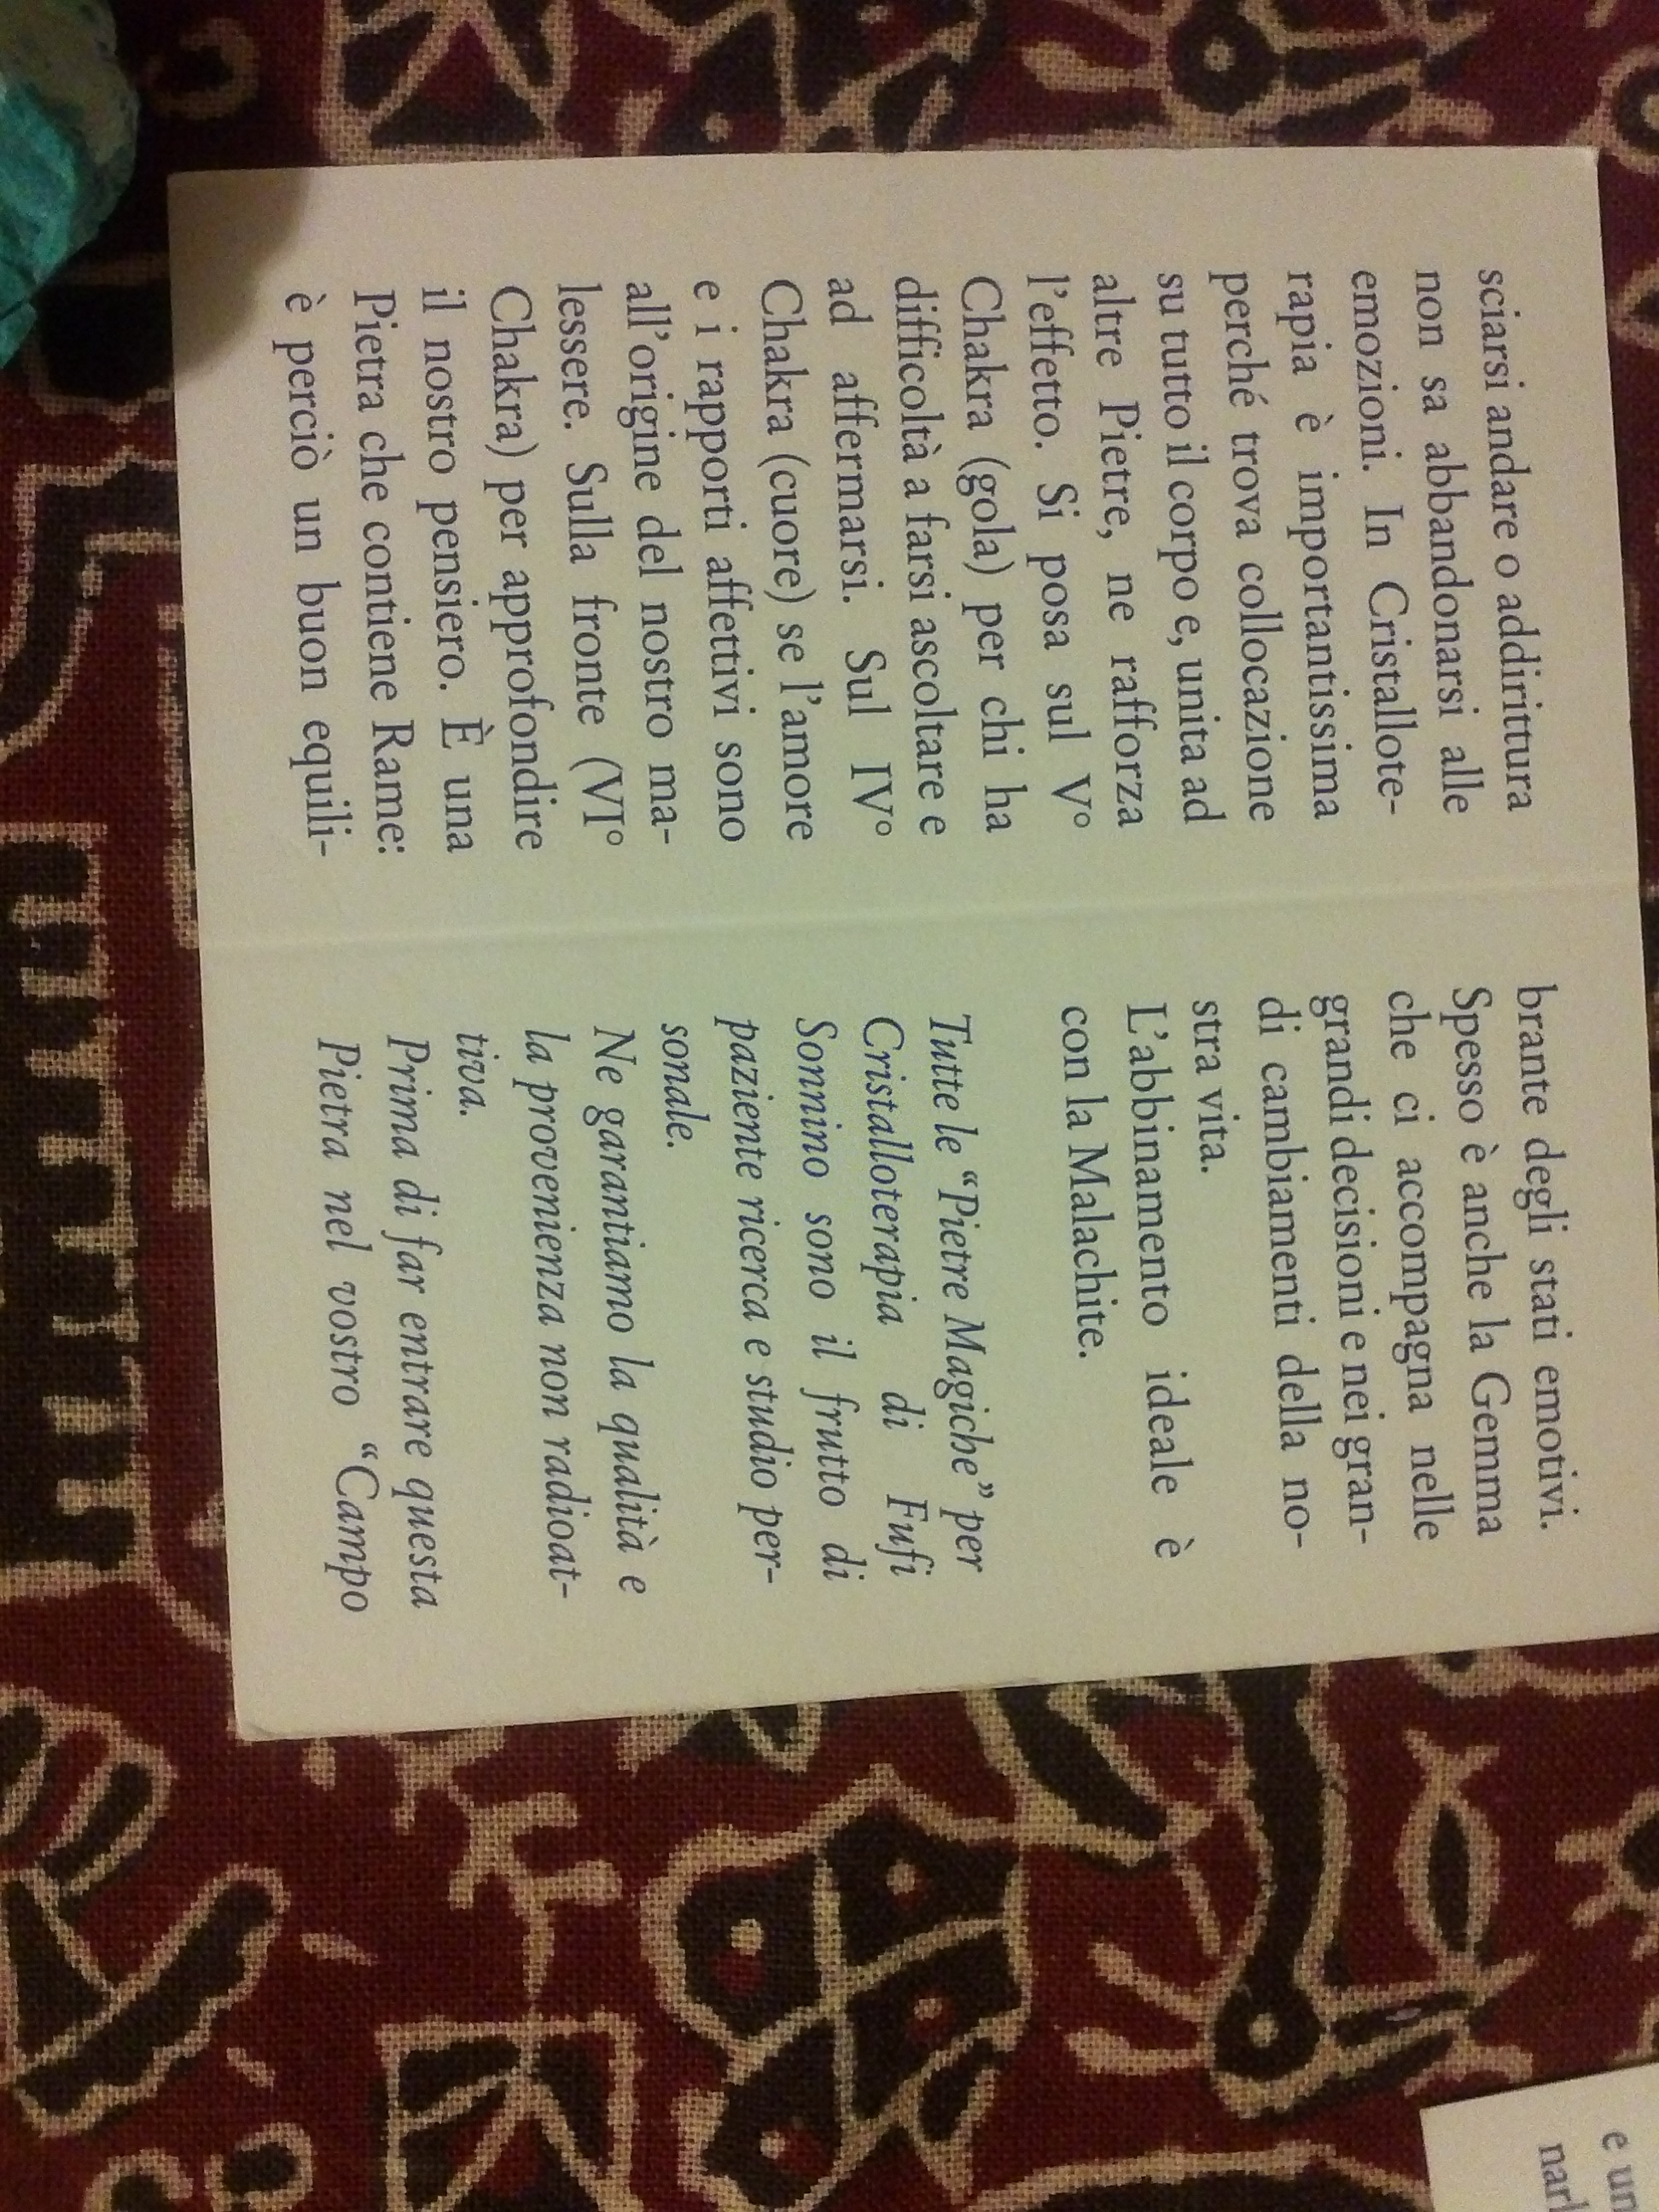 sciarsi andare o addirittura
non sa abbandonarsi alle
emozioni. In Cristallote-
rapia è importantissima
perché trova collocazione
su tutto il corpo e, unita ad
altre Pietre, ne rafforza
l'effetto. Si posa sul V°
Chakra (gola) per chi ha
difficoltà a farsi ascoltare e
ad affermarsi. Sul IV°
Chakra (cuore) se l'amore
e i rapporti affettivi sono
all'origine del nostro ma-
lessere. Sulla fronte (VI°
Chakra) per approfondire
il nostro pensiero. È una
Pietra che contiene Rame:
è perciò un buon equili-
brante degli stati emotivi.
Spesso è anche la Gemma
che ci accompagna nelle
grandi decisioni e nei gran-
di cambiamenti della no-
stra vita.
L'abbinamento ideale è
con la Malachite.
Tutte le “Pietre Magiche” per
Cristalloterapia di Fufi
Sonnino sono il frutto di
paziente ricerca e studio per-
sonale.
Ne garantiamo la qualità e
la provenienza non radioat-
tiva.
Prima di far entrare questa
Pietra nel vostro “Campo
e un